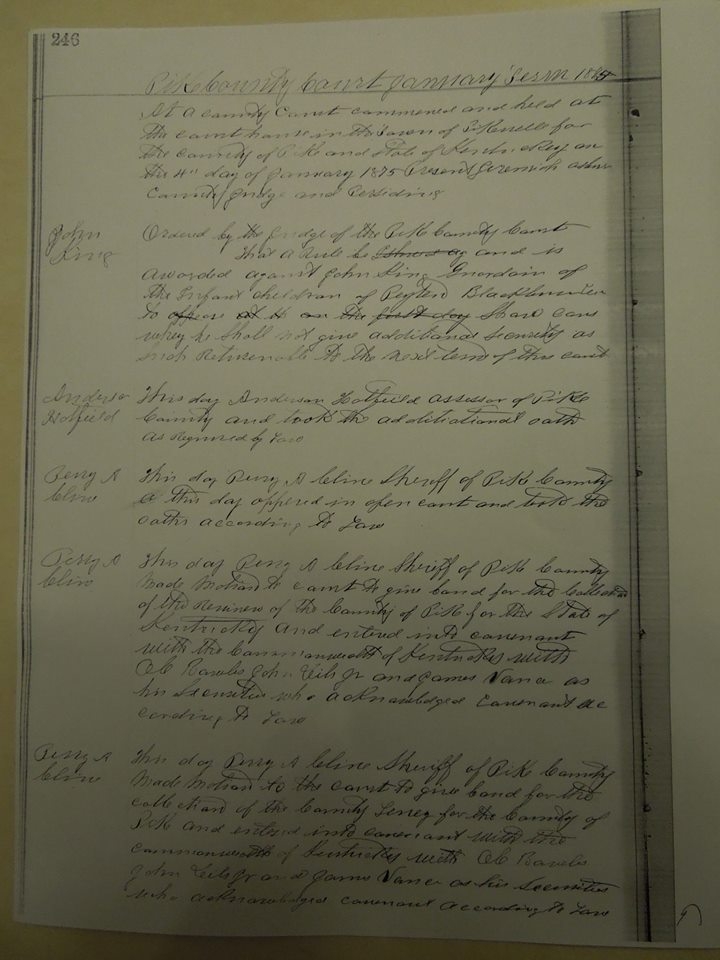 246
Pike County Court January Term 1875
At a County Court commenced and held at
the court house in the Town of Pikeville for
the County of Pike and State of Kentuckey on
the 4th day of January 1875 Present Jeremiah
County Judge and Presiding
John
King
Ordered by the Judge of the Pike County Court
That a Rule be and is
awarded against John King Guardain of
the Infant children of Peyton
to appear at on the first day Share caus
why he shall not give additional security as
such Returnable to the next term of this court
Anderson
Hatfield
This day Anderson Hatfield assessor of Pike
County and took the additational oath
as Required by Law
Perry A
Cline
This day Perry A Cline Sheriff of Pike County
this day appered in open court and took the
oaths according to Law
Perry A
Cline
This day Perry A Cline Sheriff of Pike County
Made Motion to court to give band for the Collection
of the Revinew of the County of Pike for the State of
Kentuckey and entered into covenant
with the Commonwealth of Kentuckey with
John Jr and James Vance as
his Securities who acknowledged covenant ac
cording to Law
Perry A
Cline
This day Perry A Cline Sheriff of Pike County
Made Motion to the court to give band for the
collection of the County Levey for the County of
Pike and entered into covenant with the
commonwealth of Kentuckey with
John Jr and James Vance as his Securities
who acknowledged covenant according to Law